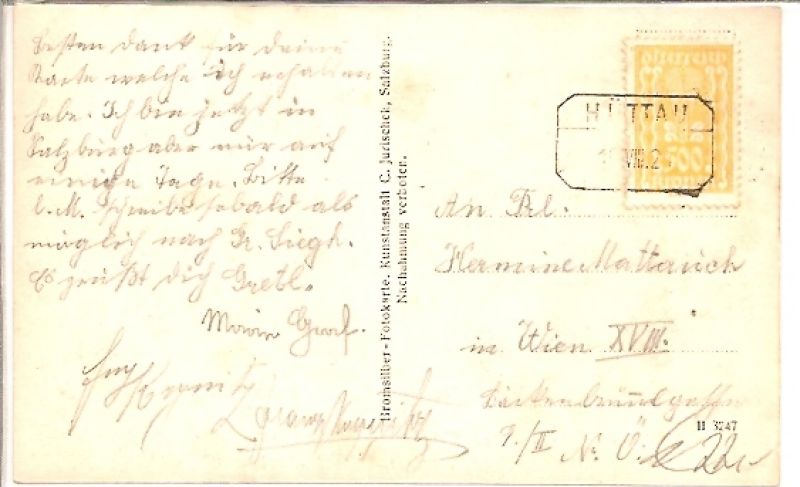 Besten Dank für deine
Karte welche ich erhalten
habe. Ich bin jetzt in
Salzburg aber nur auf
einige Tage. Bitte
l. M. schreibe sobald als
möglich nach Gr. Siegh.
Es grüßt dich Gretl.
Graf.
Bromsilber-Fotokarte. Kunstanstalt C. Jurischek, Salzburg.
Nachahmung verboten.
HÜTTAU
VIII.2
500
An Frl.
Hermine Mattauch
in Wien XVIII.
7./II N. Ö.
H 3747